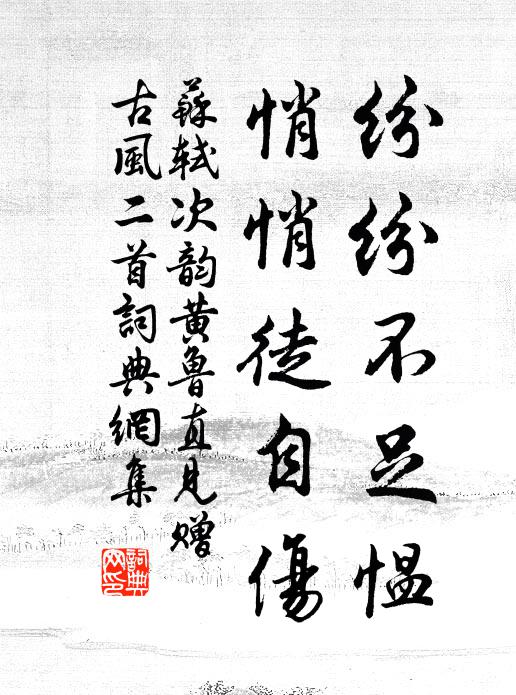 紛紛不足愠
悄悄徒自傷
蘇軾次韵黄魯直見贈
古風二首詞典網集
詞典
网印